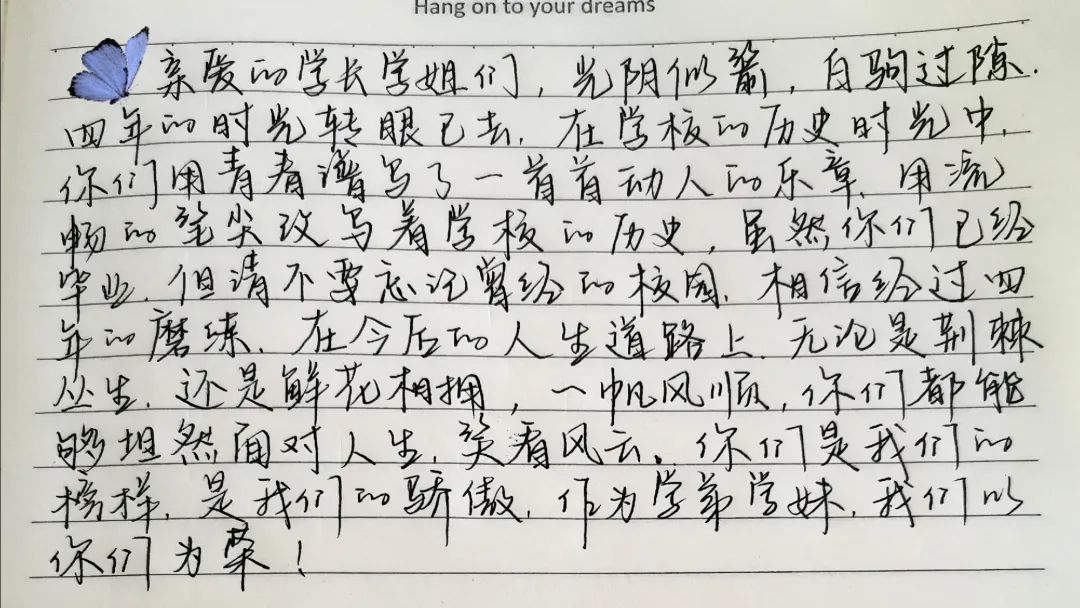 Hang on to your dreams
亲爱的学长学姐们，光阴似箭，白驹过隙．
四年的时光转眼已去．在学校的历史时光中，
你们用青春谱写了一首首动人的乐章．用流
畅的笔尖改写着学校的历史，虽然你们已经
毕业．但请不要忘记曾经的校园．相信经过四
年的磨练．在今后的人生道路上．无论是荆棘
丛生．还是鲜花相拥，一帆风顺，你们都能
够坦然面对人生．笑看风云。你们是我们的
榜样．是我们的骄傲．作为学弟学妹．我们以
你们为荣！